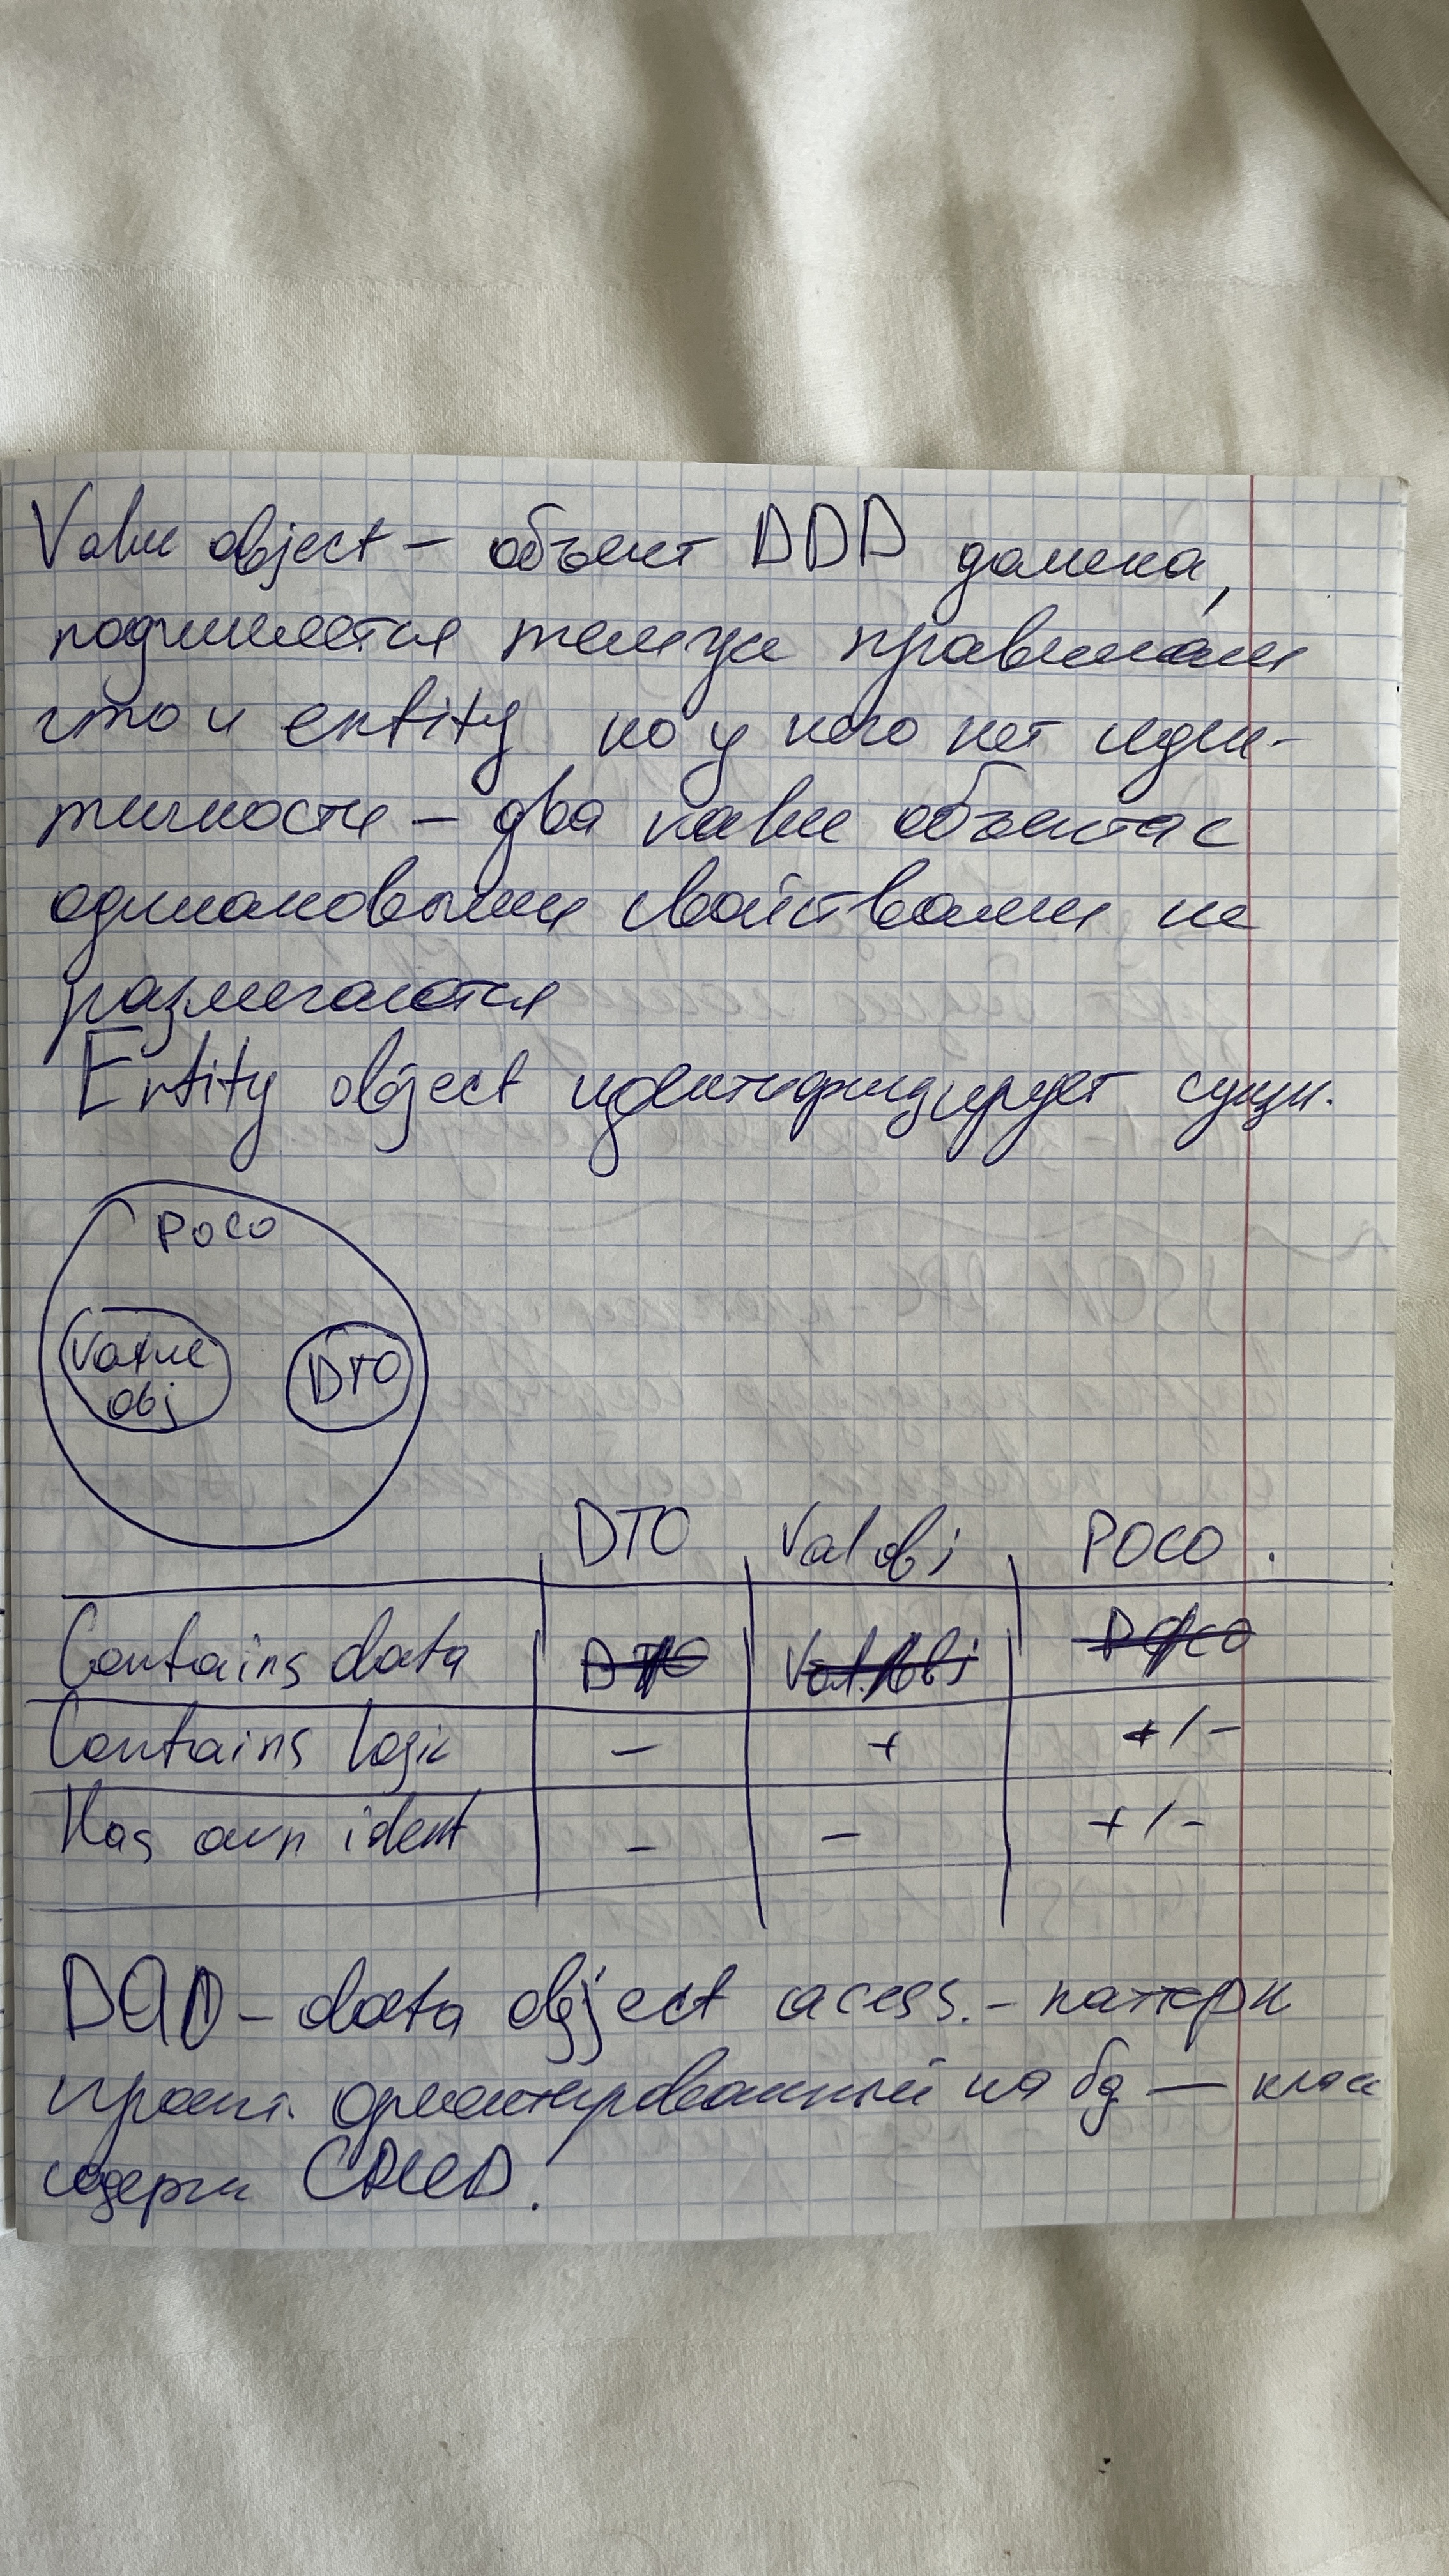 Value object – объект DDD домена,
подчиняется тем же правилам
что и entity но у него нет иден-
тичности – два value объекта с
одинаковыми свойствами не
различаются
Entity object идентифицирует сущн.
POCO
Value
obj
DTO
DTO Val obj POCO .
Contains data
Contains logic – + +/–
Has own ident – – +/–
DAO – data object acess. – паттерн
ориентированный на бд — класс
содержи CRUD.